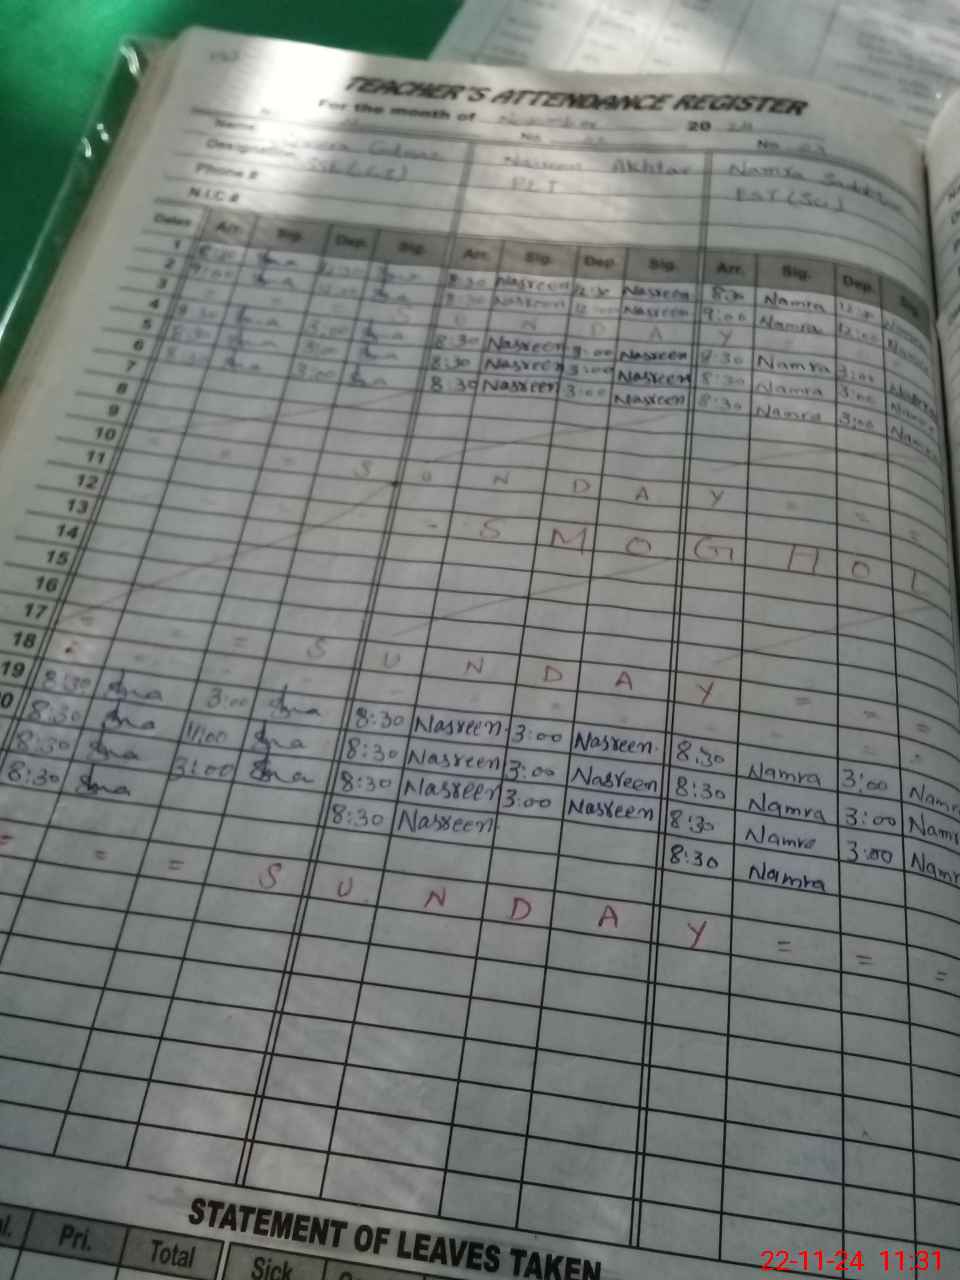 TEACHER'S ATTENDANCE REGISTER
For the month of November 20 24
Name Nasreen Akhtar Namra
Designation PST (Sci)
Phone #
N.I.C #
Dates Arr. Sig. Dep. Sig. Arr. Sig. Dep. Sig. Arr. Sig. Dep. Sig.
1 8:30 Nasreen 12:30 Nasreen 8:30 Namra 12:30
2 9:00 8:30 Nasreen 12:00 Nasreen 9:00 Namra 12:00
3 S U N D A Y
4 8:30 3:00 8:30 Nasreen 3:00 Nasreen 8:30 Namra 3:00 Namra
5 8:30 3:00 8:30 Nasreen 3:00 Nasreen 8:30 Namra 3:00 Namra
6 8:30 3:00 8:30 Nasreen 3:00 Nasreen 8:30 Namra 3:00 Namra
7
8
9
10 = = S U N D A Y = = =
11
12 - S M O G H O L
13
14
15
16
17 = = = S U N D A Y = = =
18
19 8:30 3:00 8:30 Nasreen 3:00 Nasreen 8:30 Namra 3:00 Namra
8:30 11:00 8:30 Nasreen 3:00 Nasreen 8:30 Namra 3:00 Namra
8:30 3:00 8:30 Nasreen 3:00 Nasreen 8:30 Namra 3:00 Namra
8:30 8:30 Nasreen 8:30 Namra
= = = S U N D A Y = = =
STATEMENT OF LEAVES TAKEN
Pri. Total Sick
22-11-24 11:31